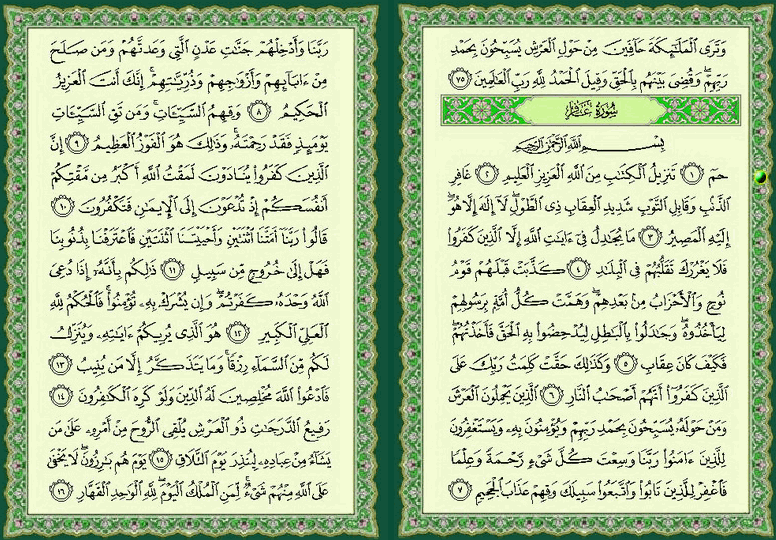 وَتَرَى ٱلْمَلَـٰٓئِكَةَ حَآفِّينَ مِنْ حَوْلِ ٱلْعَرْشِ يُسَبِّحُونَ بِحَمْدِ
رَبِّهِمْ ۖ وَقُضِىَ بَيْنَهُم بِٱلْحَقِّ وَقِيلَ ٱلْحَمْدُ لِلَّهِ رَبِّ ٱلْعَـٰلَمِينَ ٧٥
سُورَةُ غَافِرٍ
بِسْمِ ٱللَّهِ ٱلرَّحْمَـٰنِ ٱلرَّحِيمِ
حمٓ ١ تَنزِيلُ ٱلْكِتَـٰبِ مِنَ ٱللَّهِ ٱلْعَزِيزِ ٱلْعَلِيمِ ٢ غَافِرِ
ٱلذَّنۢبِ وَقَابِلِ ٱلتَّوْبِ شَدِيدِ ٱلْعِقَابِ ذِى ٱلطَّوْلِ ۖ لَآ إِلَـٰهَ إِلَّا هُوَ ۖ
إِلَيْهِ ٱلْمَصِيرُ ٣ مَا يُجَـٰدِلُ فِىٓ ءَايَـٰتِ ٱللَّهِ إِلَّا ٱلَّذِينَ كَفَرُوا۟
فَلَا يَغْرُرْكَ تَقَلُّبُهُمْ فِى ٱلْبِلَـٰدِ ٤ كَذَّبَتْ قَبْلَهُمْ قَوْمُ
نُوحٍ وَٱلْأَحْزَابُ مِنۢ بَعْدِهِمْ ۖ وَهَمَّتْ كُلُّ أُمَّةٍۭ بِرَسُولِهِمْ
لِيَأْخُذُوهُ ۖ وَجَـٰدَلُوا۟ بِٱلْبَـٰطِلِ لِيُدْحِضُوا۟ بِهِ ٱلْحَقَّ فَأَخَذْتُهُمْ ۖ
فَكَيْفَ كَانَ عِقَابِ ٥ وَكَذَٰلِكَ حَقَّتْ كَلِمَتُ رَبِّكَ عَلَى
ٱلَّذِينَ كَفَرُوٓا۟ أَنَّهُمْ أَصْحَـٰبُ ٱلنَّارِ ٦ ٱلَّذِينَ يَحْمِلُونَ ٱلْعَرْشَ
وَمَنْ حَوْلَهُۥ يُسَبِّحُونَ بِحَمْدِ رَبِّهِمْ وَيُؤْمِنُونَ بِهِۦ وَيَسْتَغْفِرُونَ
لِلَّذِينَ ءَامَنُوا۟ رَبَّنَا وَسِعْتَ كُلَّ شَىْءٍ رَّحْمَةً وَعِلْمًا
فَٱغْفِرْ لِلَّذِينَ تَابُوا۟ وَٱتَّبَعُوا۟ سَبِيلَكَ وَقِهِمْ عَذَابَ ٱلْجَحِيمِ ٧
رَبَّنَا وَأَدْخِلْهُمْ جَنَّـٰتِ عَدْنٍ ٱلَّتِى وَعَدتَّهُمْ وَمَن صَلَحَ
مِنْ ءَابَآئِهِمْ وَأَزْوَٰجِهِمْ وَذُرِّيَّـٰتِهِمْ ۚ إِنَّكَ أَنتَ ٱلْعَزِيزُ
ٱلْحَكِيمُ ٨ وَقِهِمُ ٱلسَّيِّـَٔاتِ ۚ وَمَن تَقِ ٱلسَّيِّـَٔاتِ
يَوْمَئِذٍ فَقَدْ رَحِمْتَهُۥ ۚ وَذَٰلِكَ هُوَ ٱلْفَوْزُ ٱلْعَظِيمُ ٩ إِنَّ
ٱلَّذِينَ كَفَرُوا۟ يُنَادَوْنَ لَمَقْتُ ٱللَّهِ أَكْبَرُ مِن مَّقْتِكُمْ
أَنفُسَكُمْ إِذْ تُدْعَوْنَ إِلَى ٱلْإِيمَـٰنِ فَتَكْفُرُونَ ١٠
قَالُوا۟ رَبَّنَآ أَمَتَّنَا ٱثْنَتَيْنِ وَأَحْيَيْتَنَا ٱثْنَتَيْنِ فَٱعْتَرَفْنَا بِذُنُوبِنَا
فَهَلْ إِلَىٰ خُرُوجٍ مِّن سَبِيلٍ ١١ ذَٰلِكُم بِأَنَّهُۥٓ إِذَا دُعِىَ
ٱللَّهُ وَحْدَهُۥ كَفَرْتُمْ ۖ وَإِن يُشْرَكْ بِهِۦ تُؤْمِنُوا۟ ۚ فَٱلْحُكْمُ لِلَّهِ
ٱلْعَلِىِّ ٱلْكَبِيرِ ١٢ هُوَ ٱلَّذِى يُرِيكُمْ ءَايَـٰتِهِۦ وَيُنَزِّلُ
لَكُم مِّنَ ٱلسَّمَآءِ رِزْقًا ۚ وَمَا يَتَذَكَّرُ إِلَّا مَن يُنِيبُ ١٣
فَٱدْعُوا۟ ٱللَّهَ مُخْلِصِينَ لَهُ ٱلدِّينَ وَلَوْ كَرِهَ ٱلْكَـٰفِرُونَ ١٤
رَفِيعُ ٱلدَّرَجَـٰتِ ذُو ٱلْعَرْشِ يُلْقِى ٱلرُّوحَ مِنْ أَمْرِهِۦ عَلَىٰ مَن
يَشَآءُ مِنْ عِبَادِهِۦ لِيُنذِرَ يَوْمَ ٱلتَّلَاقِ ١٥ يَوْمَ هُم بَـٰرِزُونَ ۖ لَا يَخْفَىٰ
عَلَى ٱللَّهِ مِنْهُمْ شَىْءٌ ۚ لِّمَنِ ٱلْمُلْكُ ٱلْيَوْمَ ۖ لِلَّهِ ٱلْوَٰحِدِ ٱلْقَهَّارِ ١٦